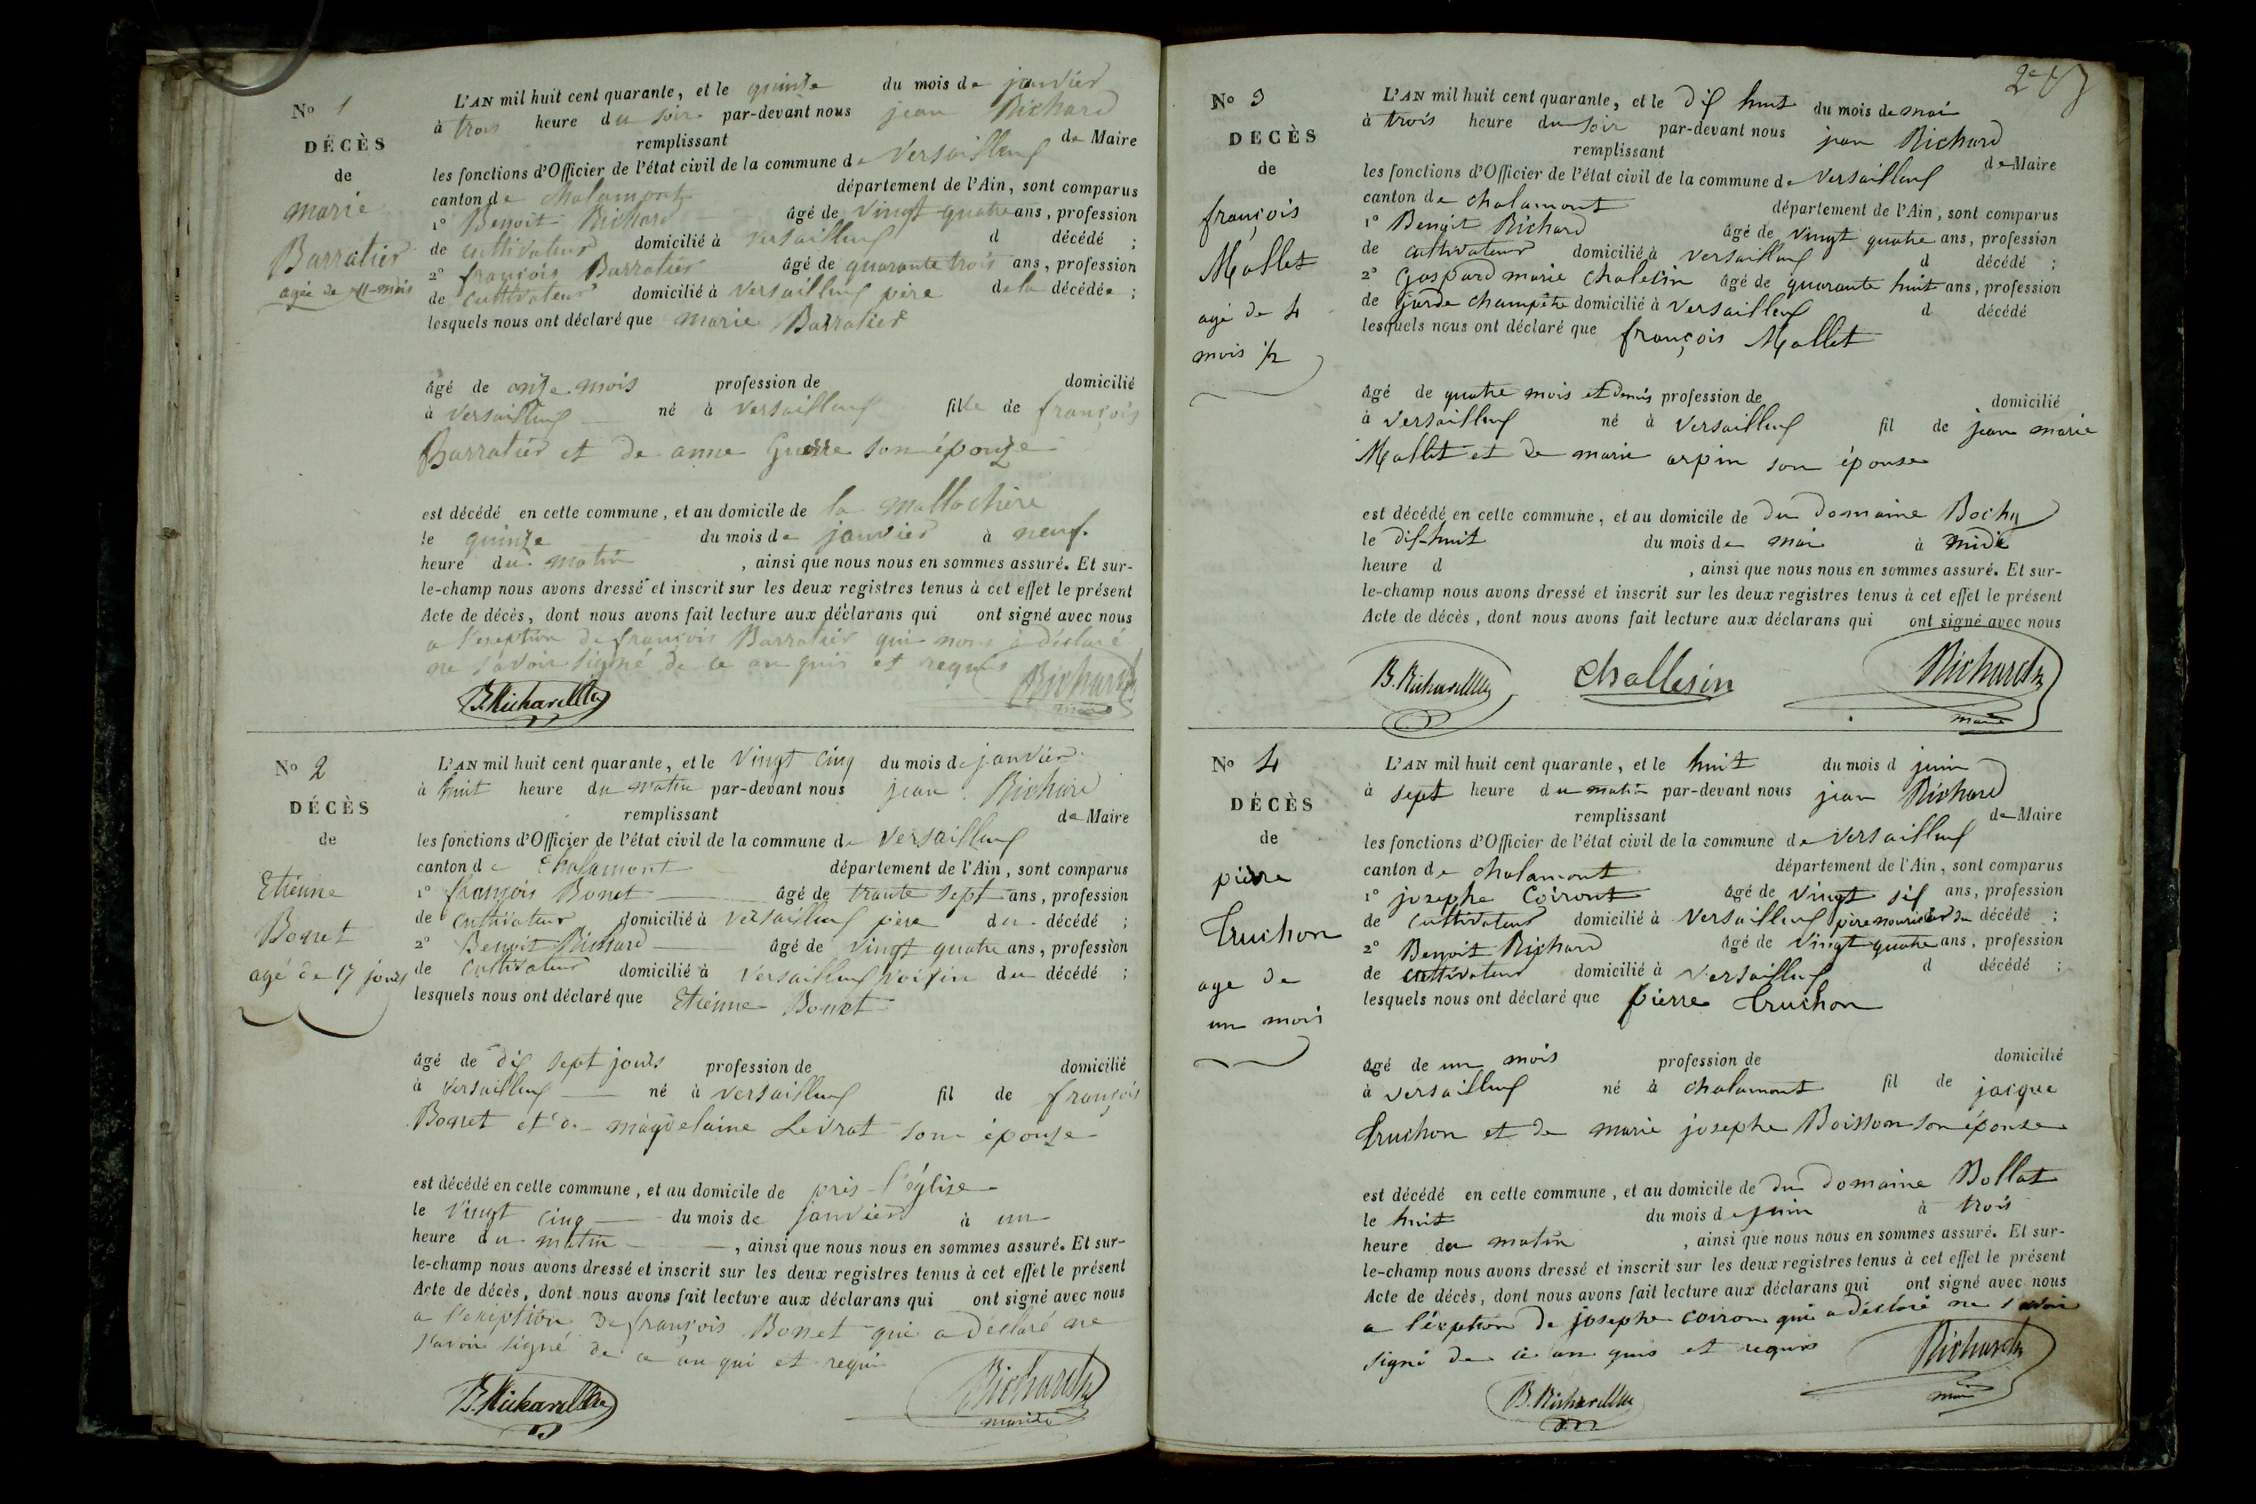 No 1
DÉCÈS
de
marie
Barratier
agée de 11 mois
L'AN mil huit cent quarante, et le quinze du mois de janvier
à trois heure du soir par-devant nous jean Richard
remplissant de Maire
les fonctions d'Officier de l'état civil de la commune de Versailleux
canton de chalamont département de l'Ain, sont comparus
1° Benoit Richard âgé de vingt quatre ans, profession
de cultivateur domicilié à versailleux d décédé ;
2° françois Barratier âgé de quarante trois ans, profession
de cultivateur domicilié à versailleux père de la décédée ;
lesquels nous ont déclaré que marie Barratier
âgé de onze mois profession de domicilié
à versailleux né à versailleux fille de françois
Barratier et de anne Guerre son épouze
est décédé en cette commune, et au domicile de la mallachère
le quinze du mois de janvier à neuf
heure du matin , ainsi que nous nous en sommes assuré. Et sur-
le-champ nous avons dressé et inscrit sur les deux registres tenus à cet effet le présent
Acte de décès, dont nous avons fait lecture aux déclarans qui ont signé avec nous
a l'exeption de françois Barratier qui nous a déclaré
ne savoir signé de ce an quis et requis
B. Richard Richard
maire
No 2
DÉCÈS
de
Etienne
Bonnet
agé de 17 jours
L'AN mil huit cent quarante, et le vingt cinq du mois de janvier
à huit heure du matin par-devant nous jean Richard
remplissant de Maire
les fonctions d'Officier de l'état civil de la commune de versailleux
canton de chalamont département de l'Ain, sont comparus
1° françois Bonet âgé de trante sept ans, profession
de cultivateur domicilié à versailleux père du décédé ;
2° Benoit Richard âgé de vingt quatre ans, profession
de cultivateur domicilié à versailleux voisin du décédé ;
lesquels nous ont déclaré que Etienne Bonet
âgé de dix sept jours profession de domicilié
à versailleux né à versailleux fil de françois
Bonnet et de magdelaine Levrat son épouze
est décédé en cette commune, et au domicile de près l'église
le vingt cinq du mois de janvier à un
heure du matin , ainsi que nous nous en sommes assuré. Et sur-
le-champ nous avons dressé et inscrit sur les deux registres tenus à cet effet le présent
Acte de décès, dont nous avons fait lecture aux déclarans qui ont signé avec nous
a l'exéption de françois Bonnet qui a déclaré ne
savoir signé de ce an qui et requi
B. Richard Richard
maire
No 3
DÉCÈS
de
françois
Mallet
agé de 4
mois 1/2
L'AN mil huit cent quarante, et le dix huit du mois de mai
à trois heure du soir par-devant nous jean Richard
remplissant de Maire
les fonctions d'Officier de l'état civil de la commune de versailleux
canton de chalamont département de l'Ain, sont comparus
1° Benoit Richard âgé de vingt quatre ans, profession
de cultivateur domicilié à versailleux d décédé ;
2° Gaspard marie chalesin âgé de quarante huit ans, profession
de garde champêtre domicilié à versailleux d décédé
lesquels nous ont déclaré que françois Mallet
âgé de quatre mois et demis profession de domicilié
à versailleux né à versailleux fil de jean marie
Mallet et de marie arpin son épouse
est décédé en cette commune, et au domicile de du domaine Bochu
le dix-huit du mois de mai à midi
heure d , ainsi que nous nous en sommes assuré. Et sur-
le-champ nous avons dressé et inscrit sur les deux registres tenus à cet effet le présent
Acte de décès, dont nous avons fait lecture aux déclarans qui ont signé avec nous
B. Richard challesin Richard
maire
No 4
DÉCÈS
de
pierre
truchon
age de
un mois
L'AN mil huit cent quarante, et le huit du mois d juin
à sept heure du matin par-devant nous jean Richard
remplissant de Maire
les fonctions d'Officier de l'état civil de la commune de versailleux
canton de chalamont département de l'Ain, sont comparus
1° josephe Coiront âgé de vingt six ans, profession
de cultivateur domicilié à versailleux père nouricier du décédé ;
2° Benoit Richard âgé de vingt quatre ans, profession
de cultivateur domicilié à versailleux d décédé ;
lesquels nous ont déclaré que pierre truchon
âgé de un mois profession de domicilié
à versailleux né à chalamont fil de jacque
truchon et de marie josephe Boisson son épouze
est décédé en cette commune, et au domicile de du domaine Bollat
le huit du mois de juin à trois
heure du matin , ainsi que nous nous en sommes assuré. Et sur-
le-champ nous avons dressé et inscrit sur les deux registres tenus à cet effet le présent
Acte de décès, dont nous avons fait lecture aux déclarans qui ont signé avec nous
a l'éxeption de josephe coiron qui a déclaré ne savoir
signé de ce an quis et requis
B. Richard Richard
maire